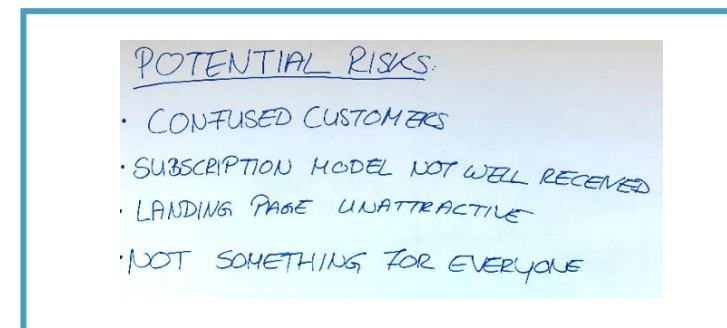 POTENTIAL RISKS:
· CONFUSED CUSTOMERS
· SUBSCRIPTION MODEL NOT WELL RECEIVED
· LANDING PAGE UNATTRACTIVE
· NOT SOMETHING FOR EVERYONE